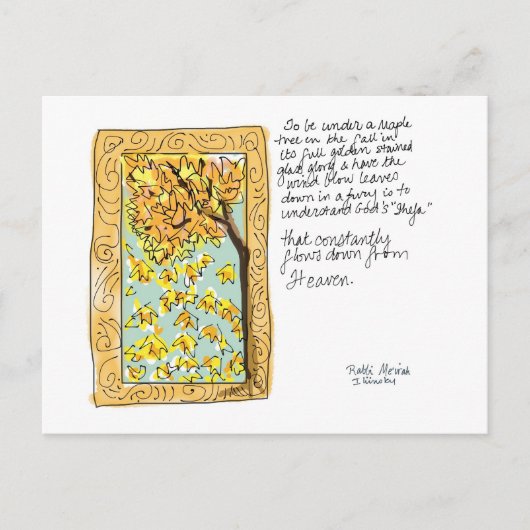 To be under a maple
tree in the fall in
its full golden stained
glass glory & have the
wind blow leaves
down in a fury is to
understand God's "Shefa"
that constantly
flows down from
Heaven.
Rabbi Meirah
Iliinsky